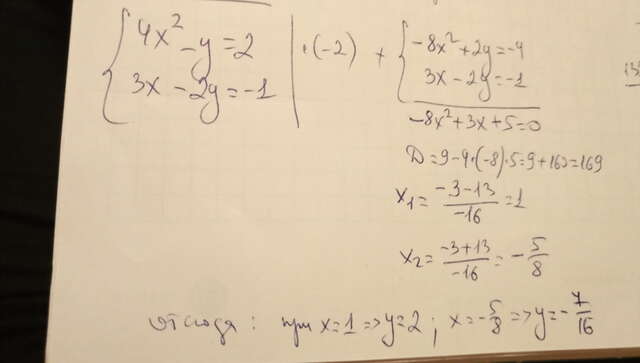 4x² - y = 2 | ·(-2) + -8x² + 2y = -4
3x - 2y = -1 3x - 2y = -1
-8x² + 3x + 5 = 0
D = 9 - 4·(-8)·5 = 9 + 160 = 169
x₁ = (-3-13)/(-16) = 1
x₂ = (-3+13)/(-16) = -5/8
отсюда: при x = 1 => y = 2; x = -5/8 => y = -7/16